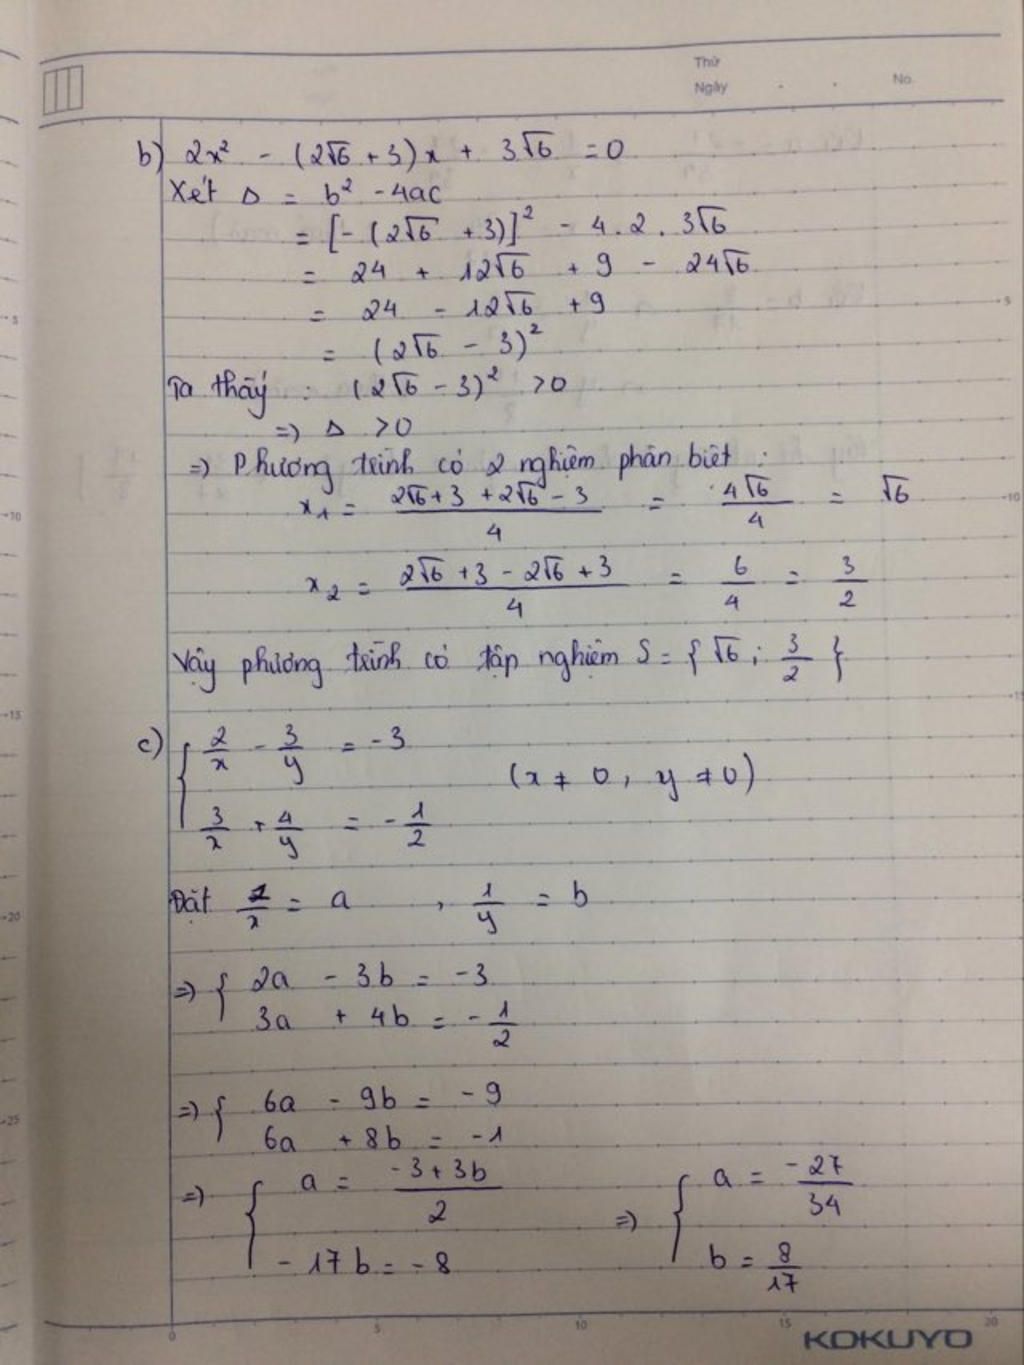 Thứ
Ngày . . No.
b) 2x² - (2√6 + 3)x + 3√6 = 0
Xét Δ = b² - 4ac
= [-(2√6 + 3)]² - 4.2.3√6
= 24 + 12√6 + 9 - 24√6
= 24 - 12√6 + 9
= (2√6 - 3)²
Ta thấy : (2√6 - 3)² > 0
=> Δ > 0
=> Phương trình có 2 nghiệm phân biệt :
x₁ = (2√6 + 3 + 2√6 - 3)/4 = 4√6/4 = √6
x₂ = (2√6 + 3 - 2√6 + 3)/4 = 6/4 = 3/2
Vậy phương trình có tập nghiệm S = {√6 ; 3/2}
c) { 2/x - 3/y = -3
(x ≠ 0, y ≠ 0)
3/x + 4/y = -1/2
Đặt 1/x = a , 1/y = b
=> { 2a - 3b = -3
3a + 4b = -1/2
=> { 6a - 9b = -9
6a + 8b = -1
=> { a = (-3 + 3b)/2 => { a = -27/34
-17b = -8 b = 8/17
0 5 10 15 20
KOKUYO